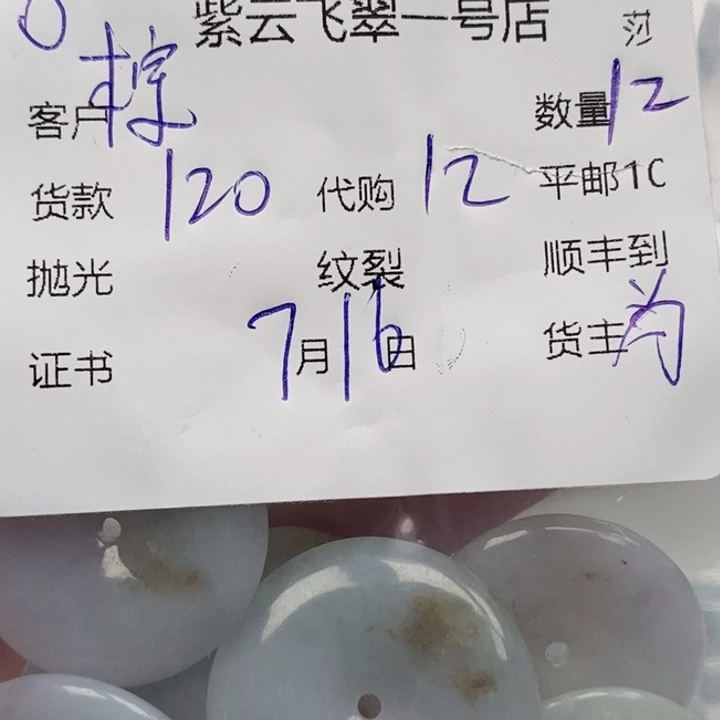 0 紫云飞翠一号店 莎
客户 棕 数量 12
货款 120 代购 12 平邮1C
抛光 纹裂 顺丰到
证书 7月16日 货主 为